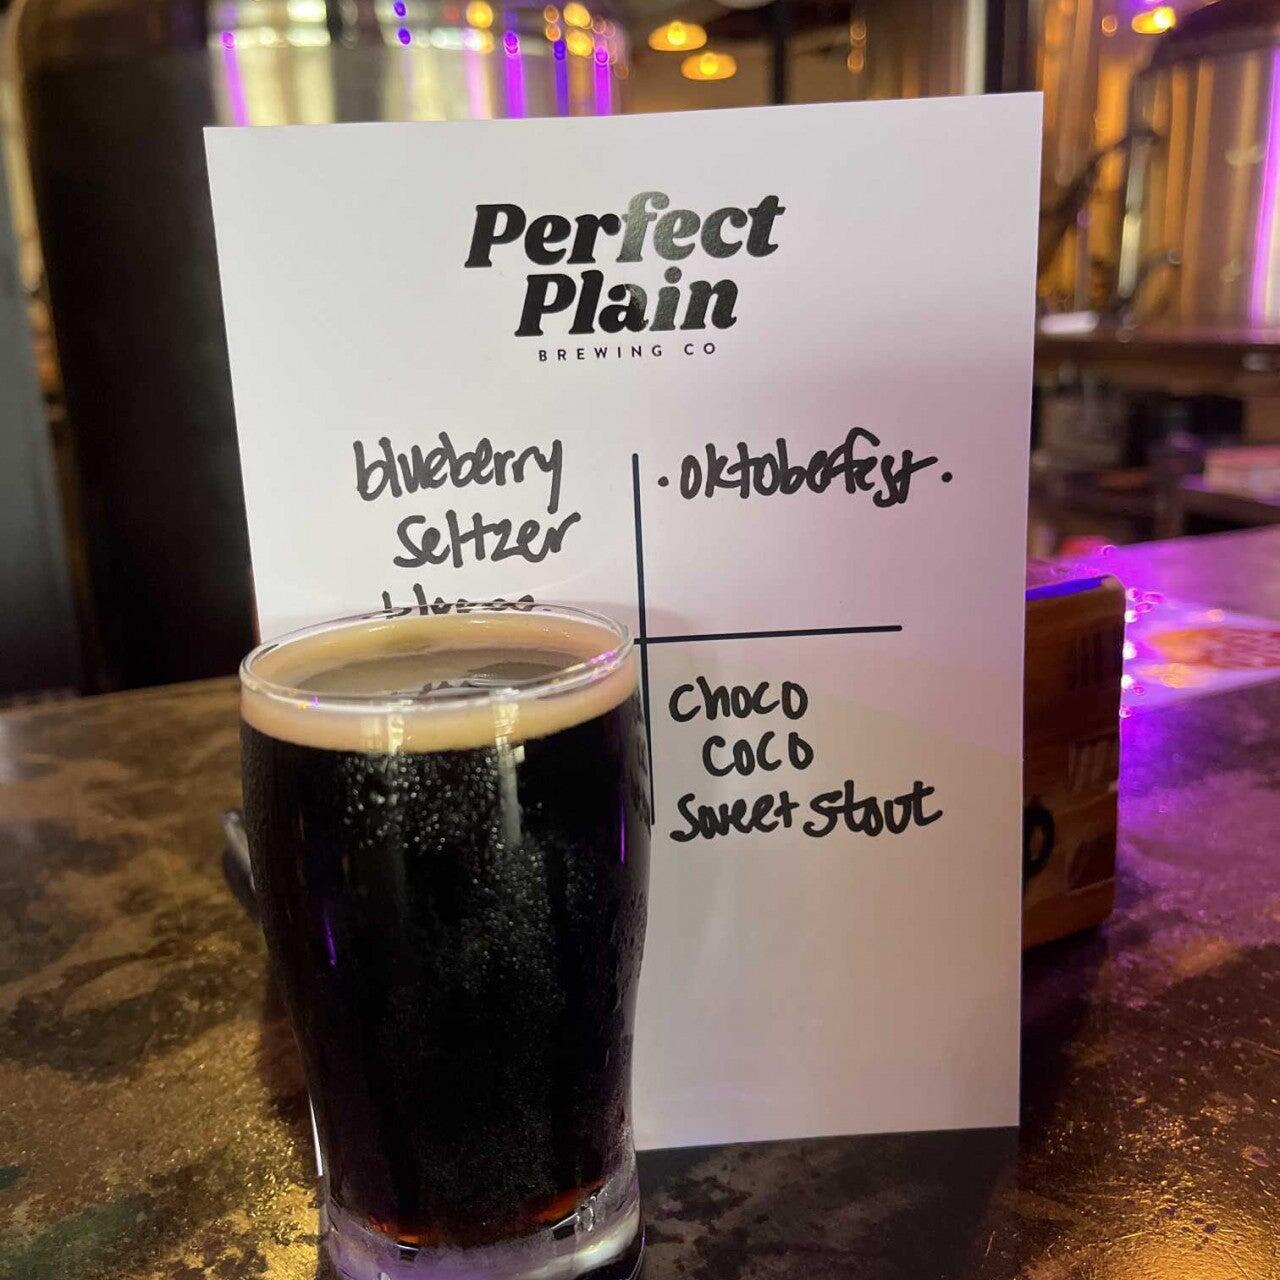 Perfect
Plain
BREWING CO
blueberry
seltzer
.oktoberfest.
choco
coco
sweet stout